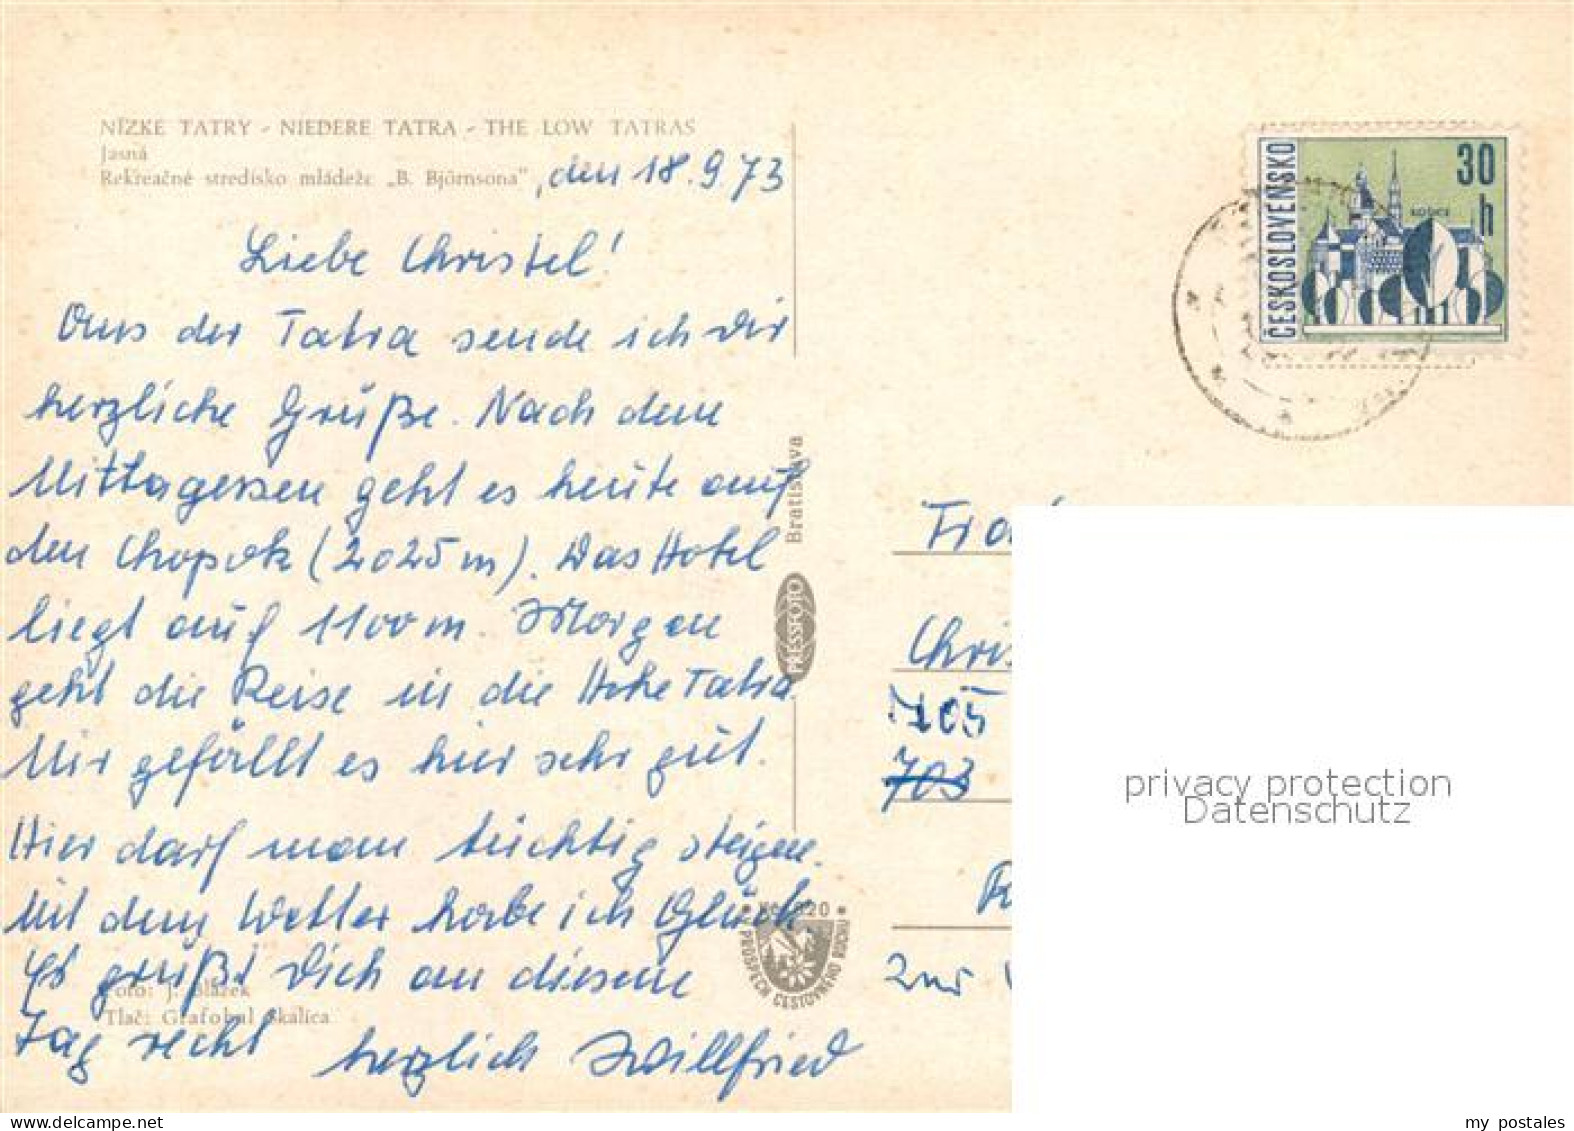 NÍZKE TATRY - NIEDERE TATRA - THE LOW TATRAS
Jasná
Rekreačné stredisko mládeže „B. Björnsona"
, den 18.9.73
Liebe Christel!
Aus der Tatra sende ich Dir
herzliche Grüße. Nach dem
Mittagessen geht es heute auf
den Chopok (2025 m). Das Hotel
liegt auf 1100 m. Morgen
geht die Reise in die Hohe Tatra.
Mir gefällt es hier sehr gut.
Hier darf man tüchtig steigen.
Mit dem Wetter habe ich Glück
Es grüßt Dich an diesem
Tag recht
herzlich Willfried
Foto: J. Blažek
Tlač: Grafobal Skalica
Bratislava
PRESSFOTO
V PROSPECH CESTOVNÉHO RUCHU
ČESKOSLOVENSKO
30
h
KOŠICE
Chris
7105
703
zur
privacy protection
Datenschutz
my postales